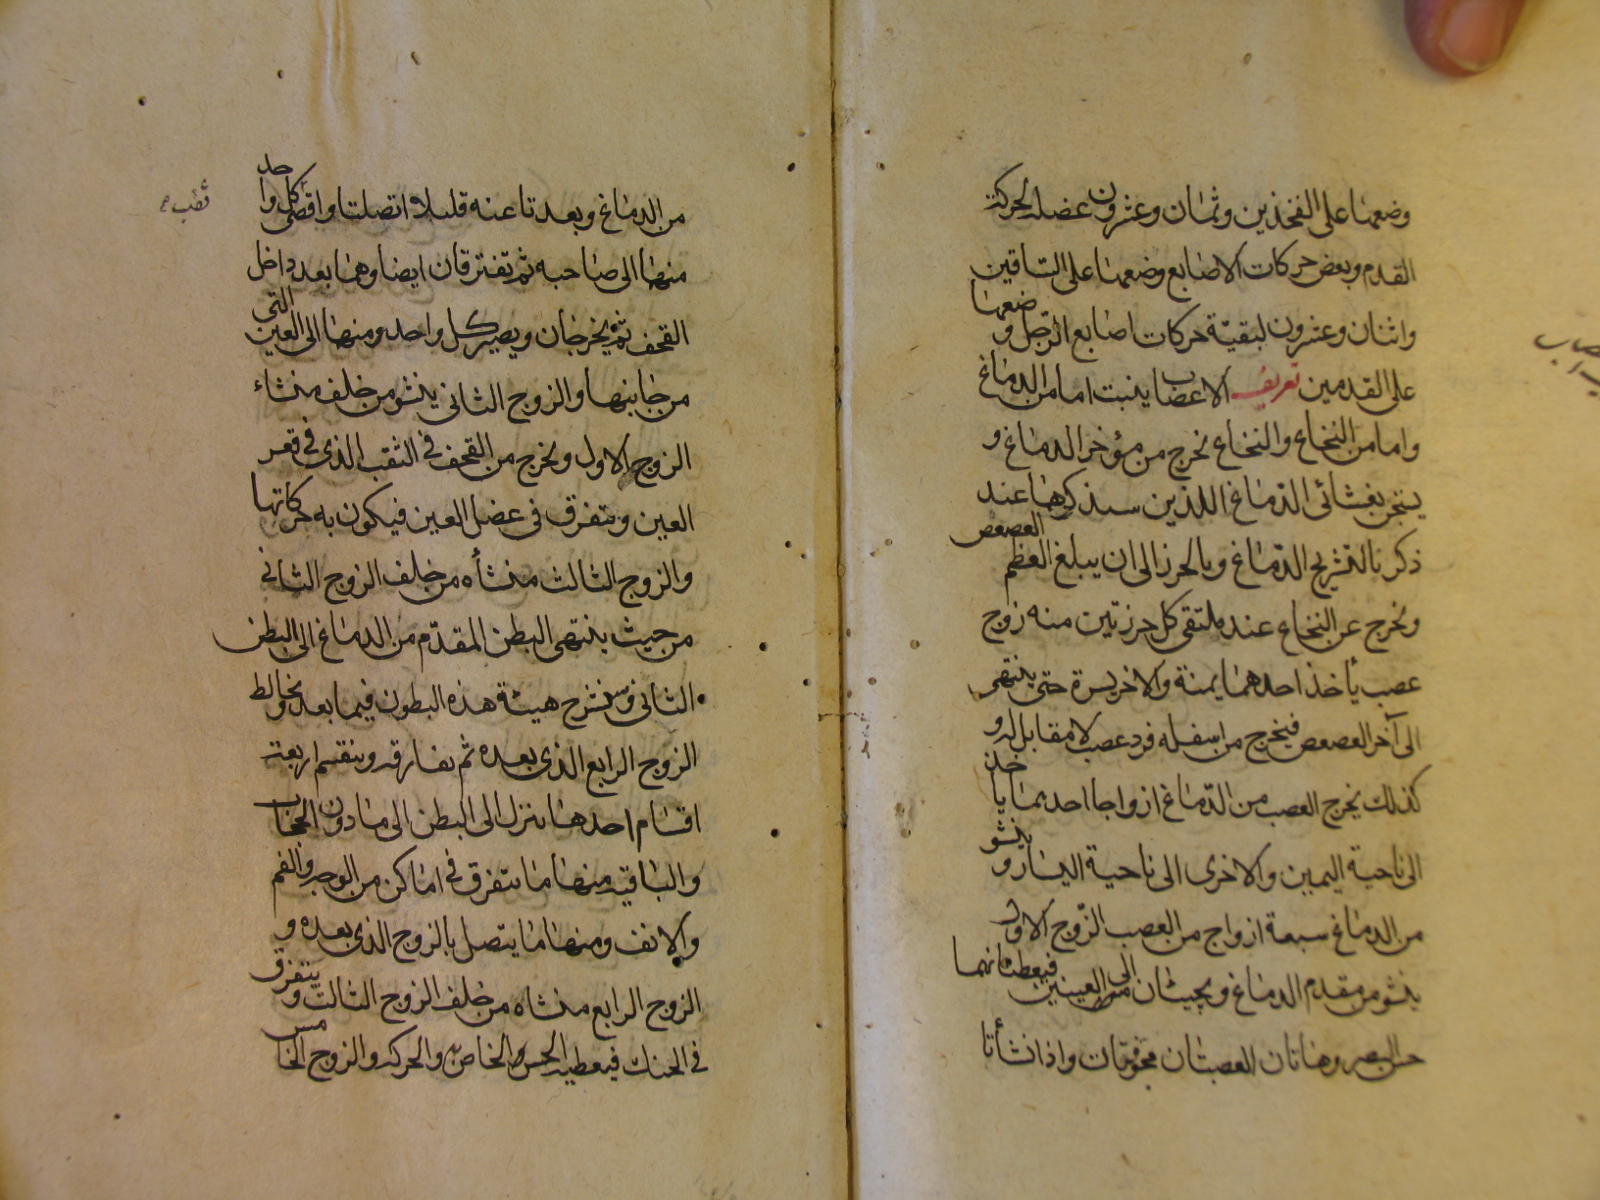 وضعها على الفخذين وثمان وعشرون عضلة لحركة
القدم وبعض حركات الاصابع وضعها على الساقين
واثنان وعشرون لبقية حركات اصابع الرجل وضعها
على القدمين تعريف الاعصاب ينبت اما من الدماغ
واما من النخاع والنخاع تخرج من مؤخر الدماغ و
بغشائى الدماغ اللذين سنذكرها عند
ذكرنا لتشريح الدماغ وبالخرز الى ان يبلغ العظم العصعص
وتخرج عن النخاع عند ملتقى كل خرزتين منه زوج
عصب يأخذ احدهما يمنة والاخر يسرة حتى ينتهى
الى آخر العصعص فيخرج من اسفله فرد عصب لا مقابل له و
كذلك يخرج العصب من الدماغ ازواجا احدهما ياخذ
الى ناحية اليمين والاخرى الى ناحية اليسار وينشو
من الدماغ سبعة ازواج من العصب الزوج الاول
ينشو من مقدم الدماغ ويجيئان الى العينين فيعطيانهما
حس البصر وهاتان العصبتان مجوفتان واذا نشأتا
من الدماغ وبعدتا عنه قليلا اتصلتا وافضى كل واحد
منهما الى صاحبه ثم تفترقان ايضا وهما بعد داخل
القحف ثم يخرجان ويصير كل واحد ومنهما الى العين التى
من جانبها والزوج الثانى ينشو من خلف منشاء
الزوج الاول وتخرج من القحف فى الثقب الذى فى قعر
العين ويتفرق فى عضل العين فيكون به حركاتها
والزوج الثالث منشأه من خلف الزوج الثانى
من حيث ينتهى البطن المقدم من الدماغ الى البطن
الثانى وسنشرح هيئة هذه البطون فيما بعد تخالط
الزوج الرابع الذى بعده ثم يفارقه وينقسم اربعة
اقسام احدها ينزل الى البطن الى ما دون الحجاب
والباقية منها ما يتفرق فى اماكن من الوجه والفم
والانف ومنها ما يتصل بالزوج الذى بعده و
الزوج الرابع منشاه من خلف الزوج الثالث ويتفرق
فى الحنك فيعطيه الحس الخاص به والحركة والزوج الخامس